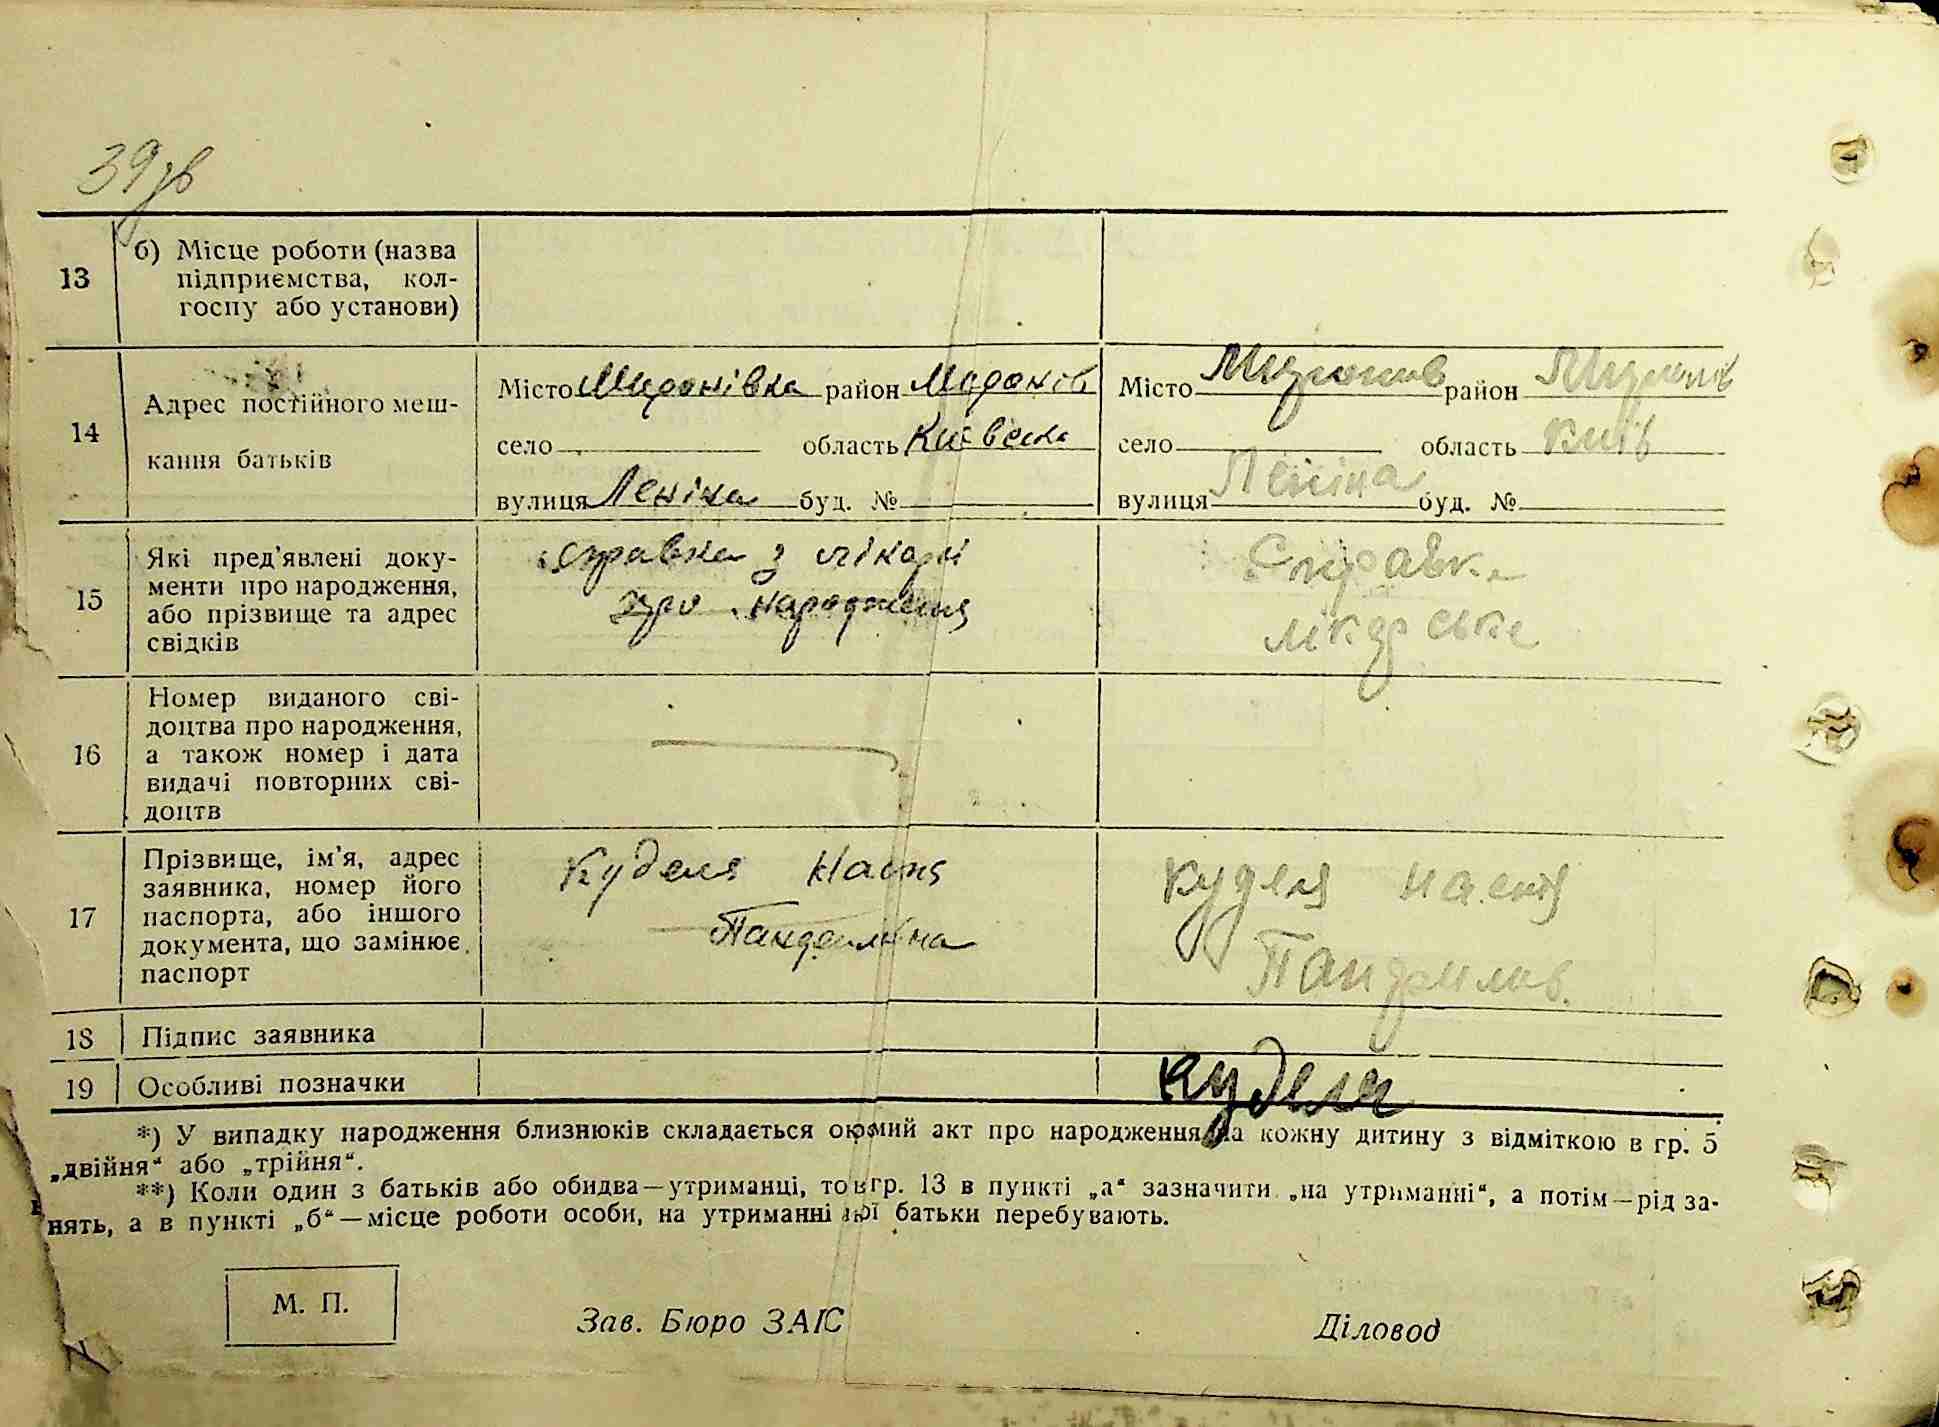 39зв
13
б) Місце роботи (назва
підприємства, кол-
госпу або установи)
14
Адрес постійного меш-
кання батьків
Місто Миронівка район Миронів
село область Києвска
вулиця Леніна буд. №
Місто Миронів район Миронів
село область Київ
вулиця Леніна буд. №
15
Які пред'явлені доку-
менти про народження,
або прізвище та адрес
свідків
справка з лікарні
про народження
Справка
лікарська
16
Номер виданого сві-
доцтва про народження,
а також номер і дата
видачі повторних сві-
доцтв
17
Прізвище, ім'я, адрес
заявника, номер його
паспорта, або іншого
документа, що замінює
паспорт
Куделя Настя
Куделя Настя
18
Підпис заявника
19
Особливі позначки
Куделя
*) У випадку народження близнюків складається окремий акт про народження на кожну дитину з відміткою в гр. 5
„двійня“ або „трійня“.
**) Коли один з батьків або обидва—утриманці, то в гр. 13 в пункті „а“ зазначити „на утриманні“, а потім—рід за-
нять, а в пункті „б“—місце роботи особи, на утриманні якої батьки перебувають.
М. П.
Зав. Бюро ЗАГС
Діловод